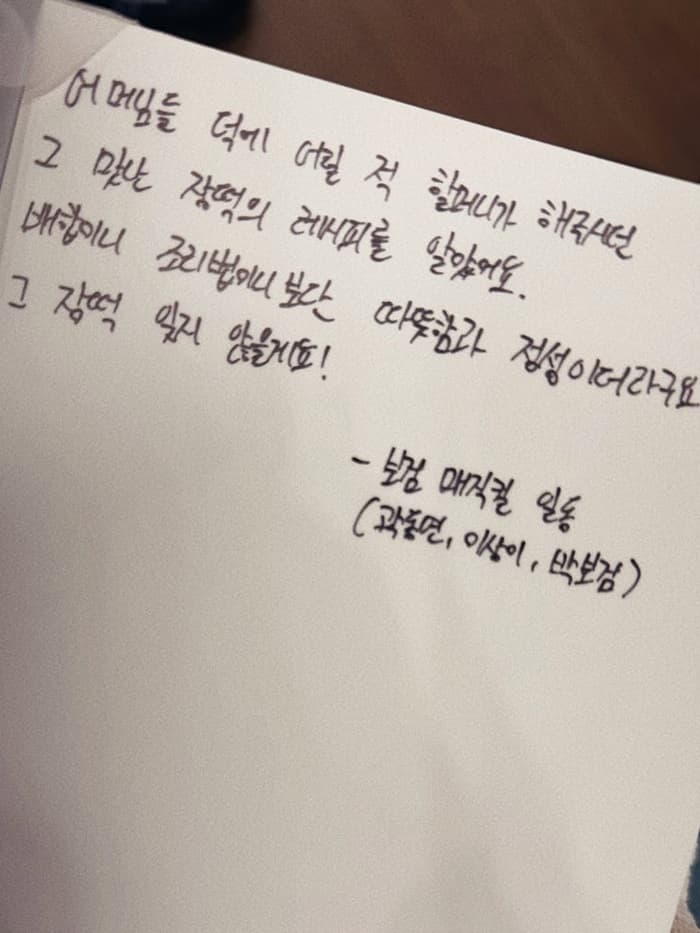 어머님들 덕에 어릴 적 할머니가 해주시던
그 맛난 장떡의 레시피를 알았어요.
배합이니 조리법이니보단 따뜻함과 정성이더라구요
그 장떡 잊지 않을게요!
- 보검 매직컬 일동
(곽동연, 이상이, 박보검)